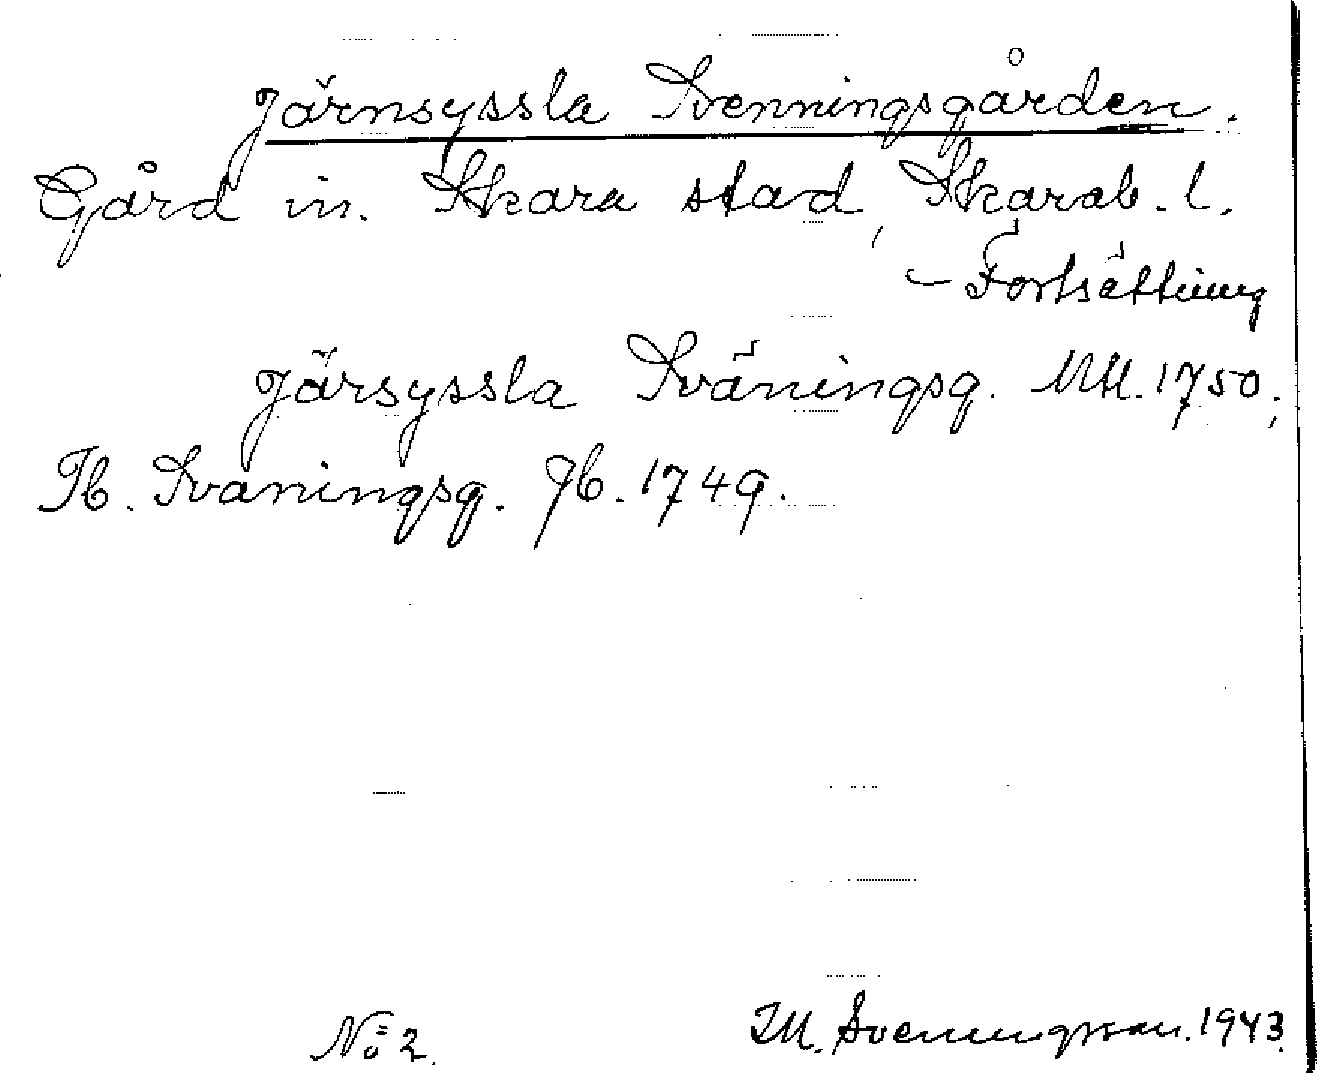 Järnsyssla Svenningsgården.
Gård in. Skara stad, Skarab. l.
– Fortsättning
Järsyssla Sväningsg. MM. 1750;
Jb. Svaningsg. Jb. 1749.
No 2.
I.M. Svenningsson. 1943.